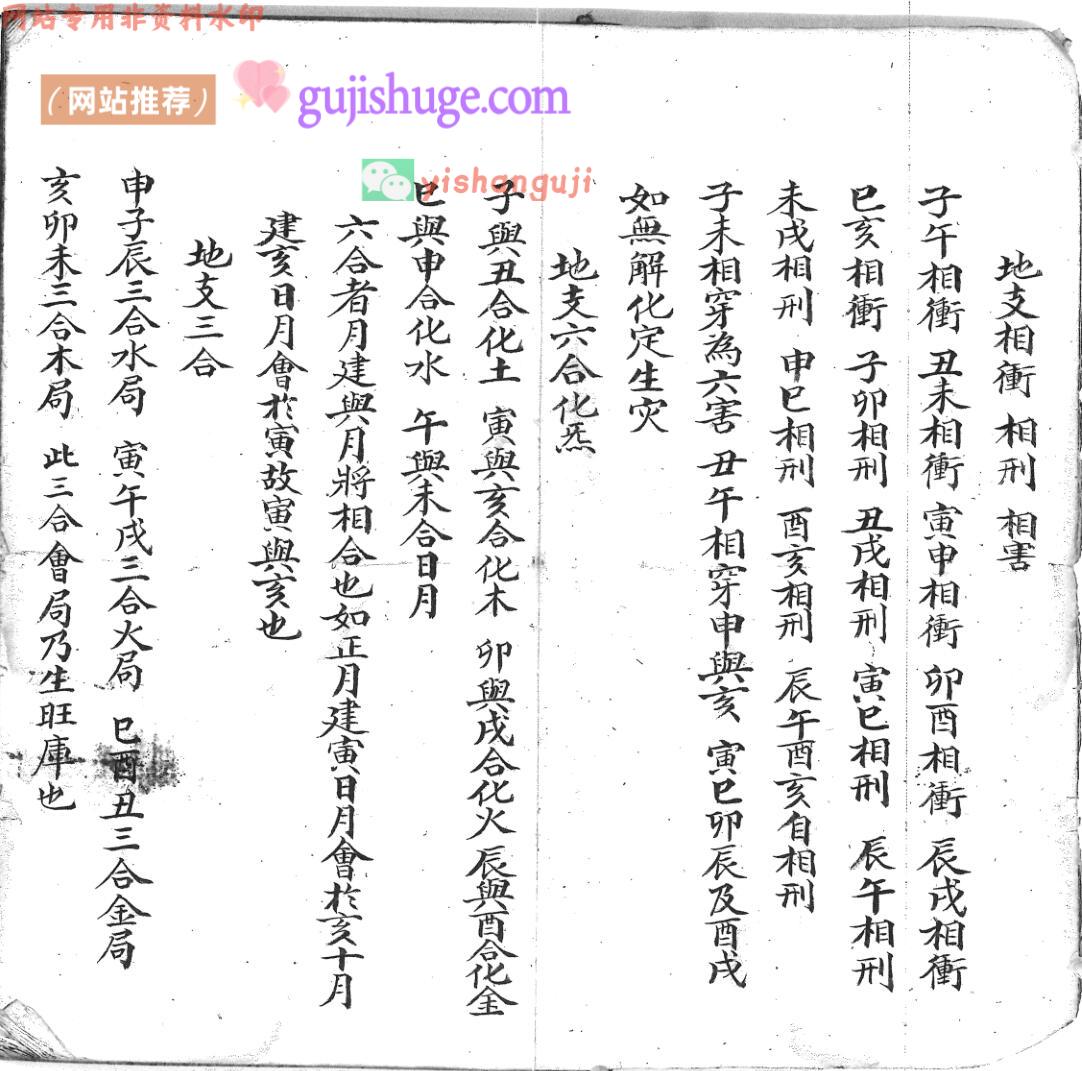 网站专用非资料水印
（网站推荐）
gujishuge.com
yishanguji
地支相衝 相刑 相害
子午相衝 丑未相衝 寅申相衝 卯酉相衝 辰戌相衝
巳亥相衝 子卯相刑 丑戌相刑 寅巳相刑 辰午相刑
未戌相刑 申巳相刑 酉亥相刑 辰午酉亥自相刑
子未相穿為六害 丑午相穿申與亥 寅巳卯辰及酉戌
如無解化定生灾
地支六合化炁
子與丑合化土 寅與亥合化木 卯與戌合化火 辰與酉合化金
巳與申合化水 午與未合日月
六合者月建與月將相合也如正月建寅日月會於亥十月
建亥日月會於寅故寅與亥也
地支三合
申子辰三合水局 寅午戌三合火局 巳酉丑三合金局
亥卯未三合木局 此三合會局乃生旺庫也